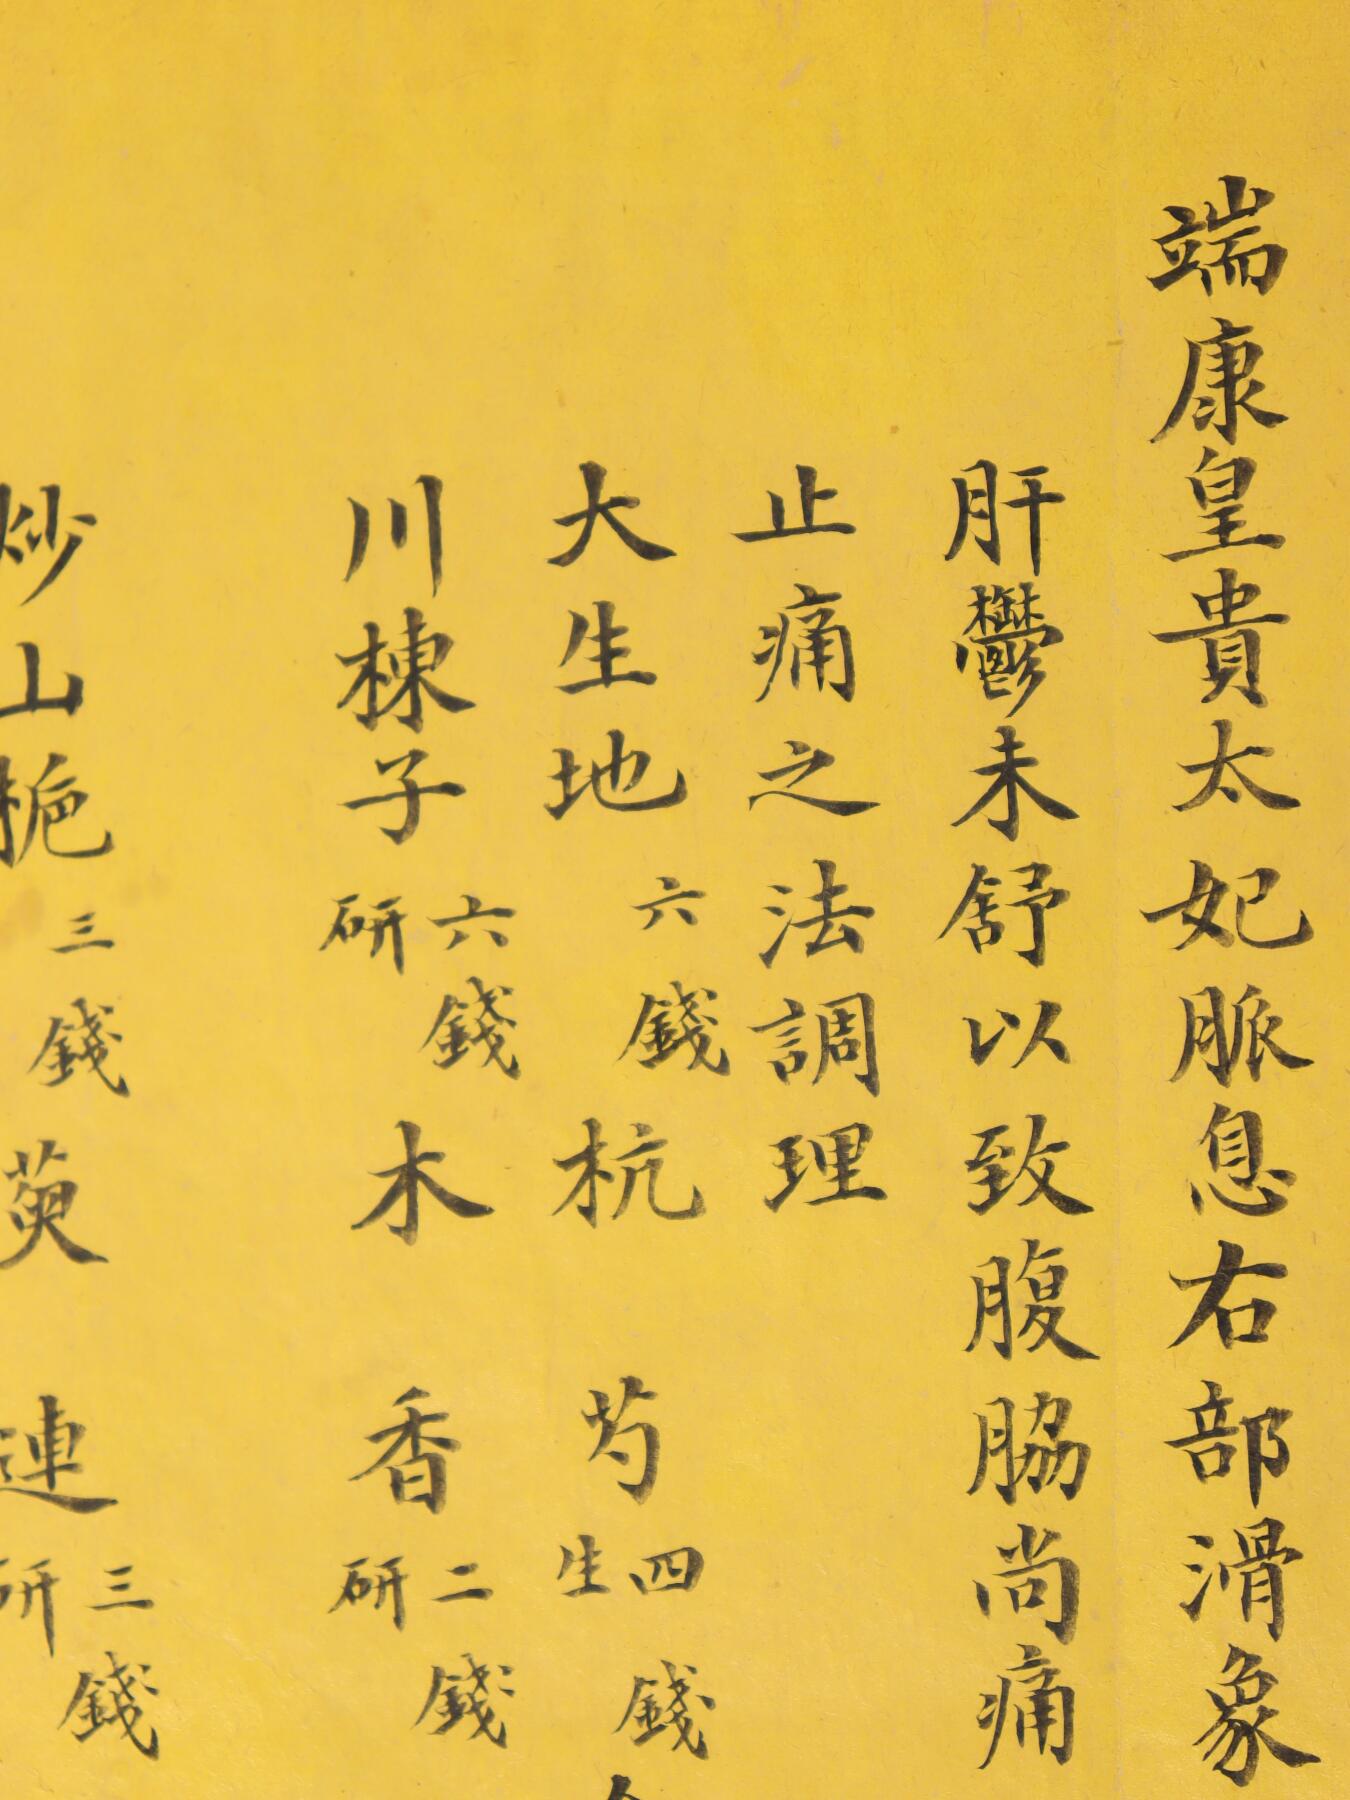 端康皇貴太妃脈息右部滑象
肝鬱未舒以致腹脇尚痛
止痛之法調理
大生地六錢杭芍生四錢
川楝子研六錢木香研二錢
炒山梔三錢萸連研三錢